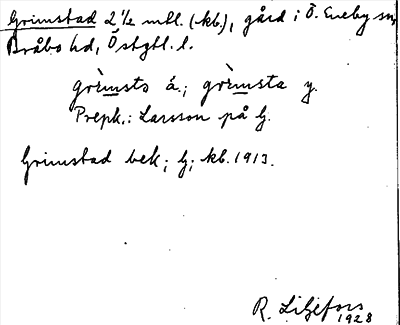 Grimstad 2 1/2 mtl. (kb.), gård i Ö. Eneby sn,
Bråbo hd, Östgtl. l.
gòrmsto á.; gòrmsta y.
Prepk.: Larsson på G.
Grimstad bek; G; kb. 1913.
R. Liljefors
1928